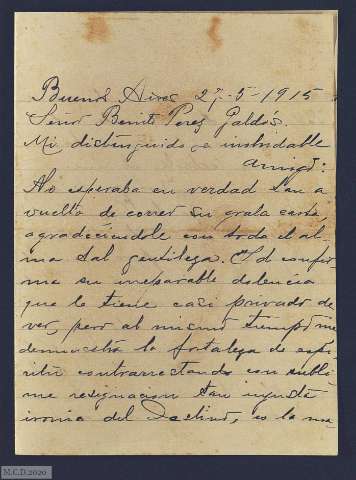 Buenos Aires 27-5-1915
Señor Benito Perez Galdós.
Mi distinguido e inolvidable
amigo:
No esperaba en verdad tan a
vuelta de correo su grata carta,
agradeciéndole con toda el al-
ma tal gentileza. El confir-
ma su irreparable dolencia
que le tiene casi privado de
ver, pero al mismo tiempo me
demuestra la fortaleza de espi-
ritu contrarrestando con subli-
me resignacion tan injusta
ironia del Destino, es la ma
M.C.D 2020